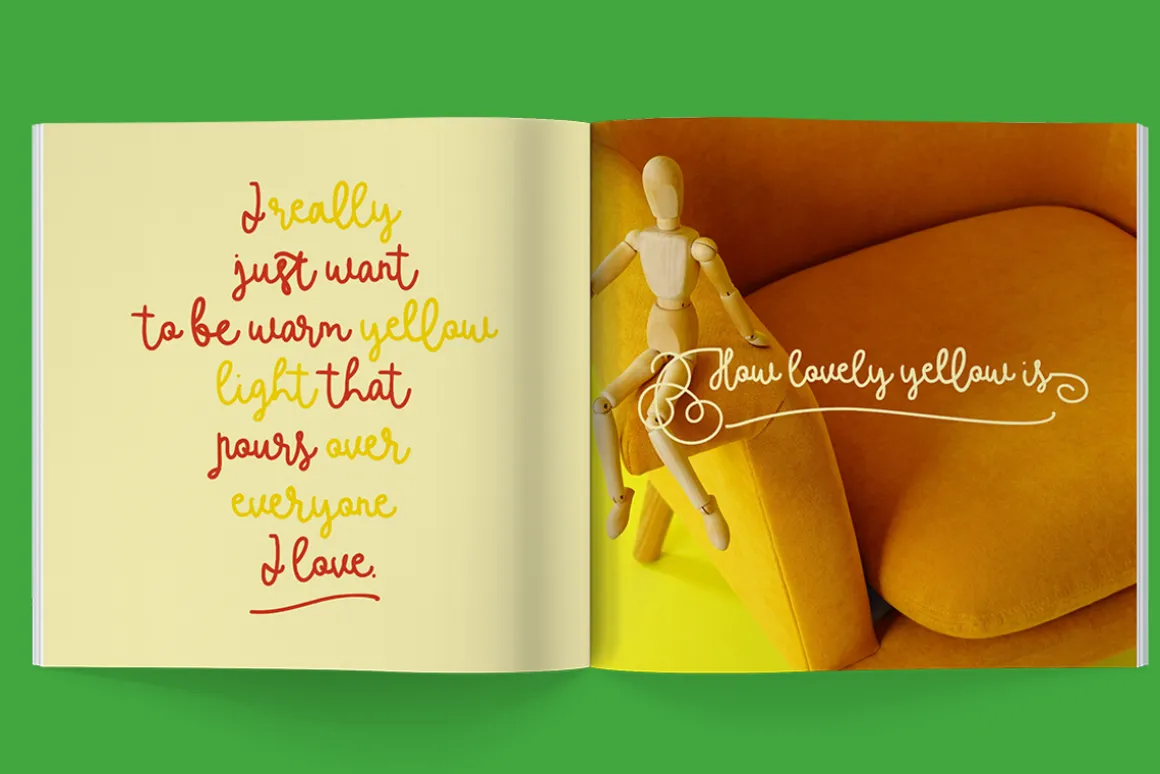 I really
just want
to be warm yellow
light that
pours over
everyone
I love.
How lovely yellow is